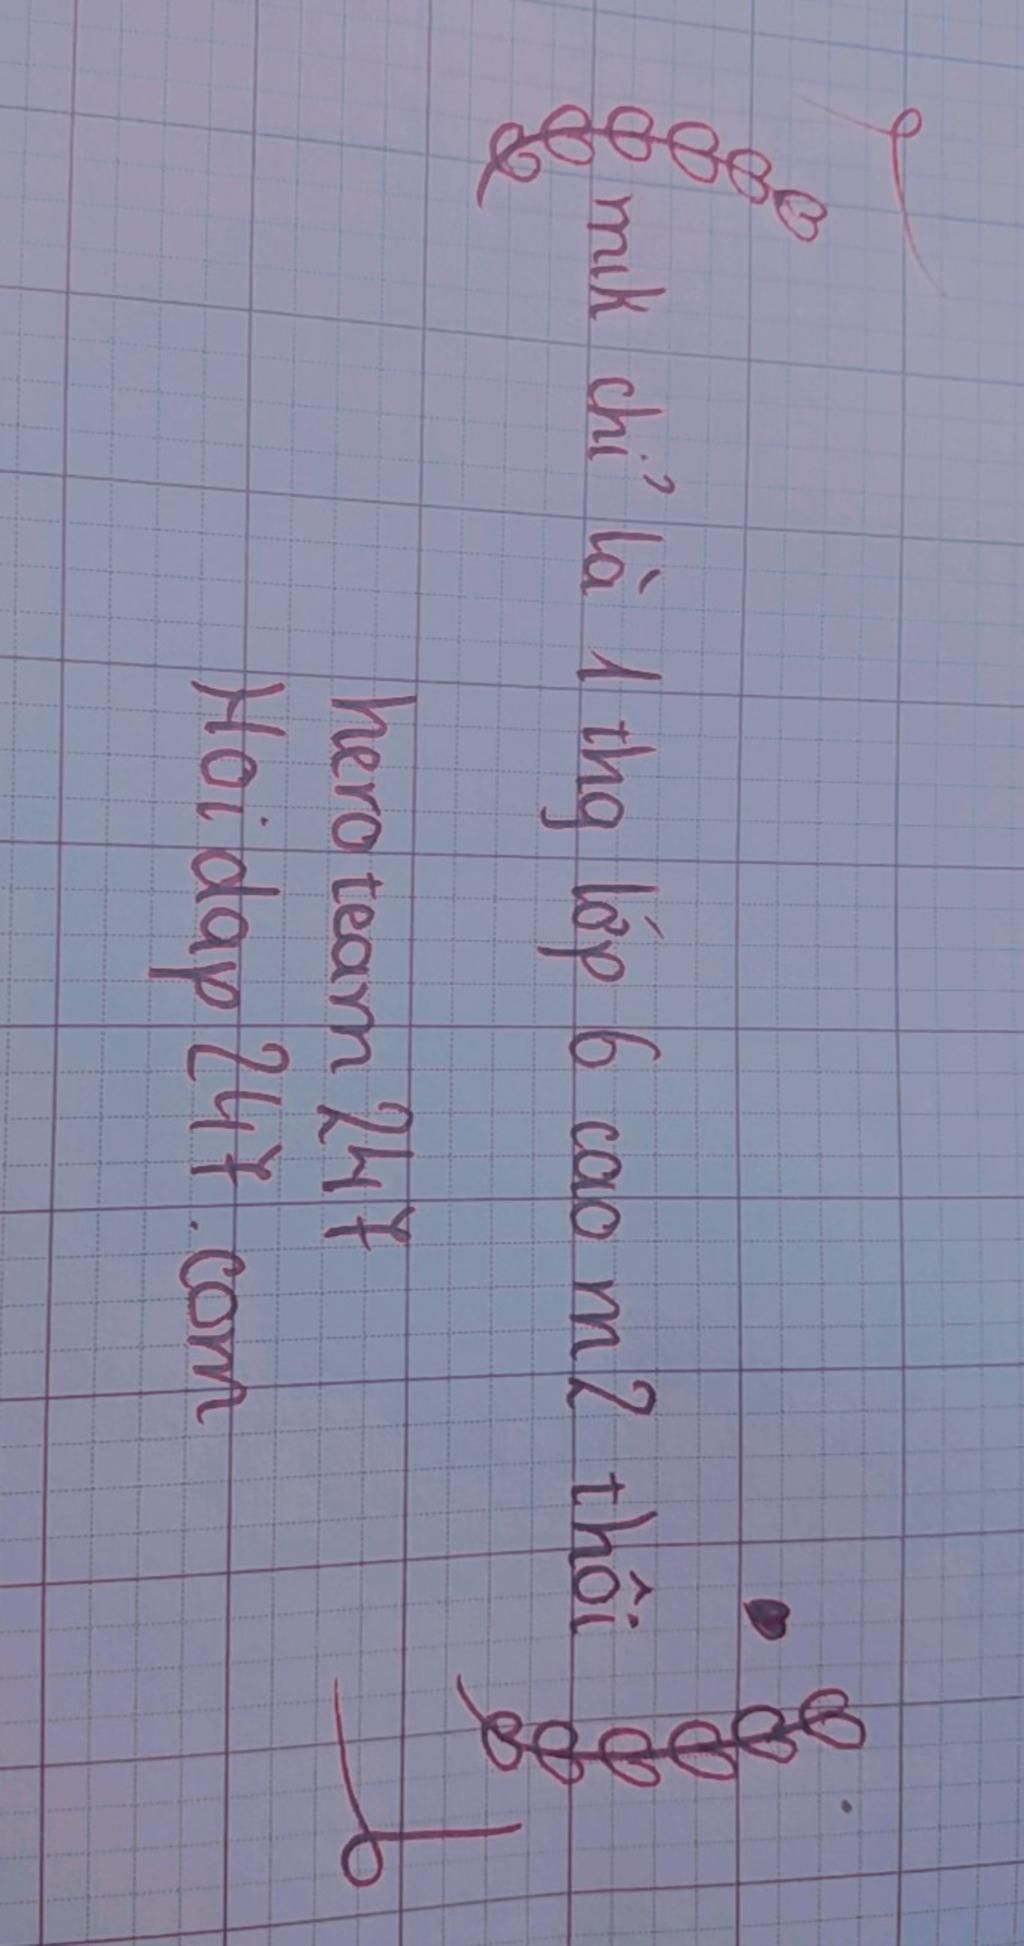 mik chỉ là 1 thg lớp 6 cao m2 thôi
hero team 247
Hoi dap 247.com